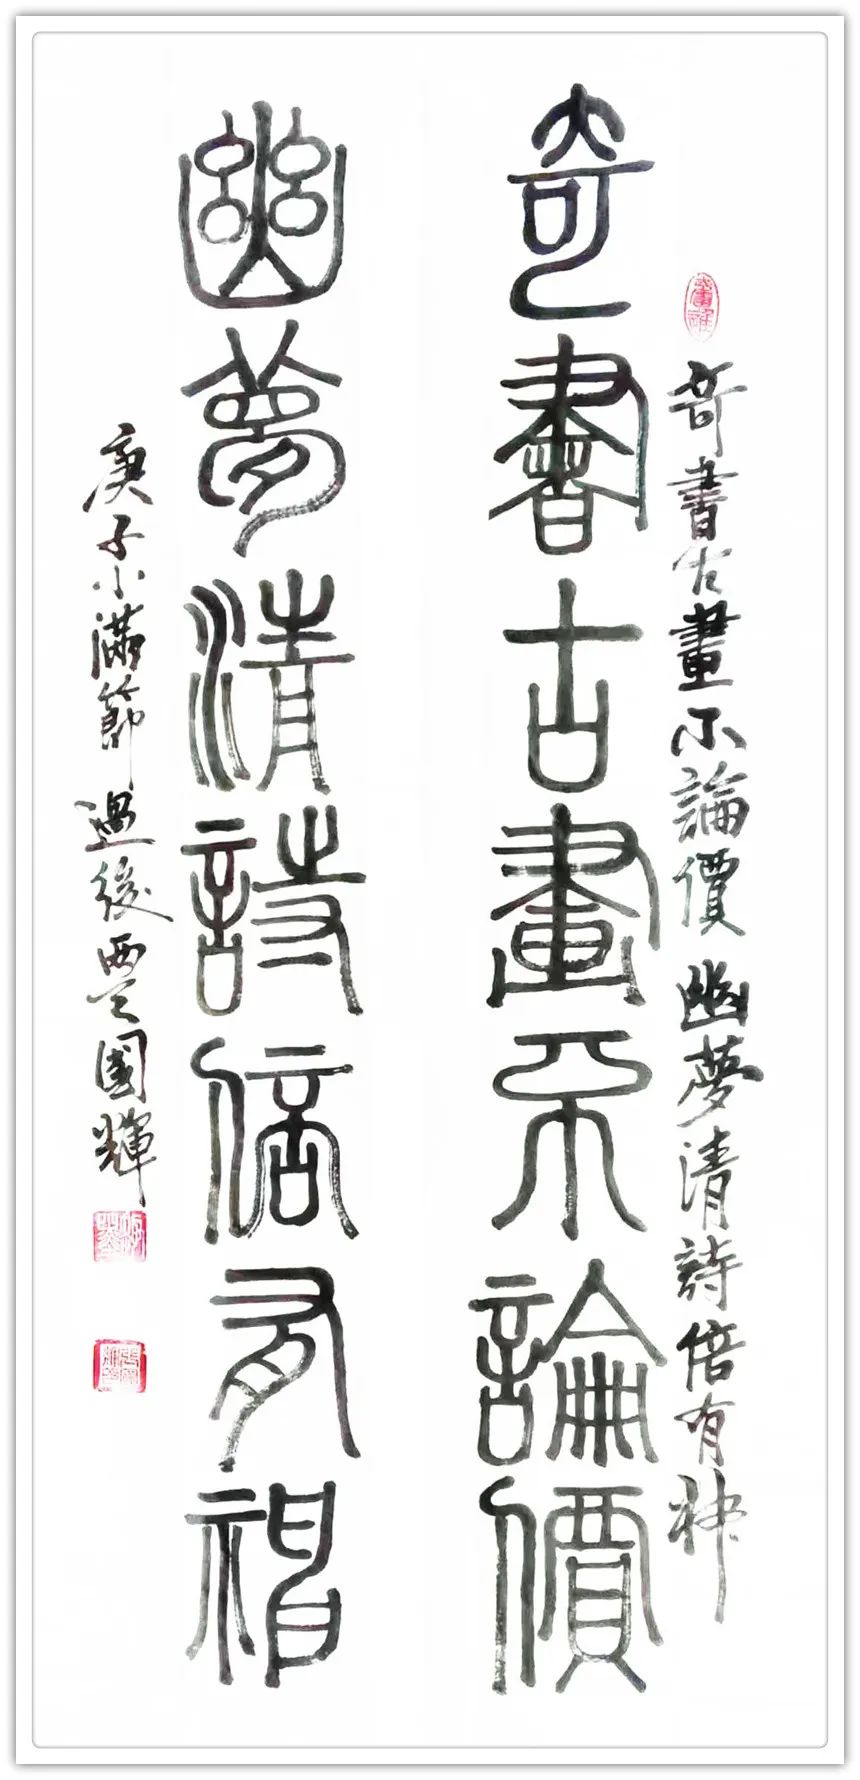 奇書古畫不論價
幽夢清詩倍有神
奇書古畫不論價 幽夢清詩倍有神
庚子小滿節過後
國輝